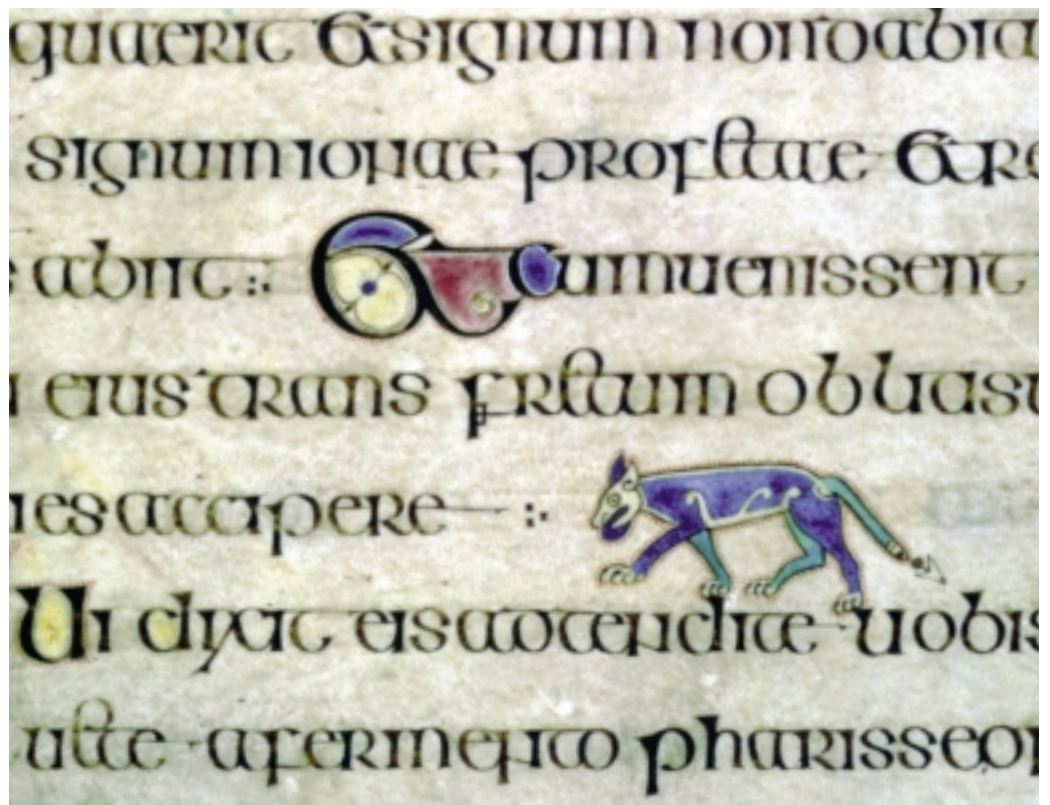 quaerit & signum non dabit
signum ionae profetae & re
s abiit :· & cum uenissent
i eius trans fretum obliti su
nes accipere :·
Qui dixit eis adtendite uobis
uete a fermento pharisseor